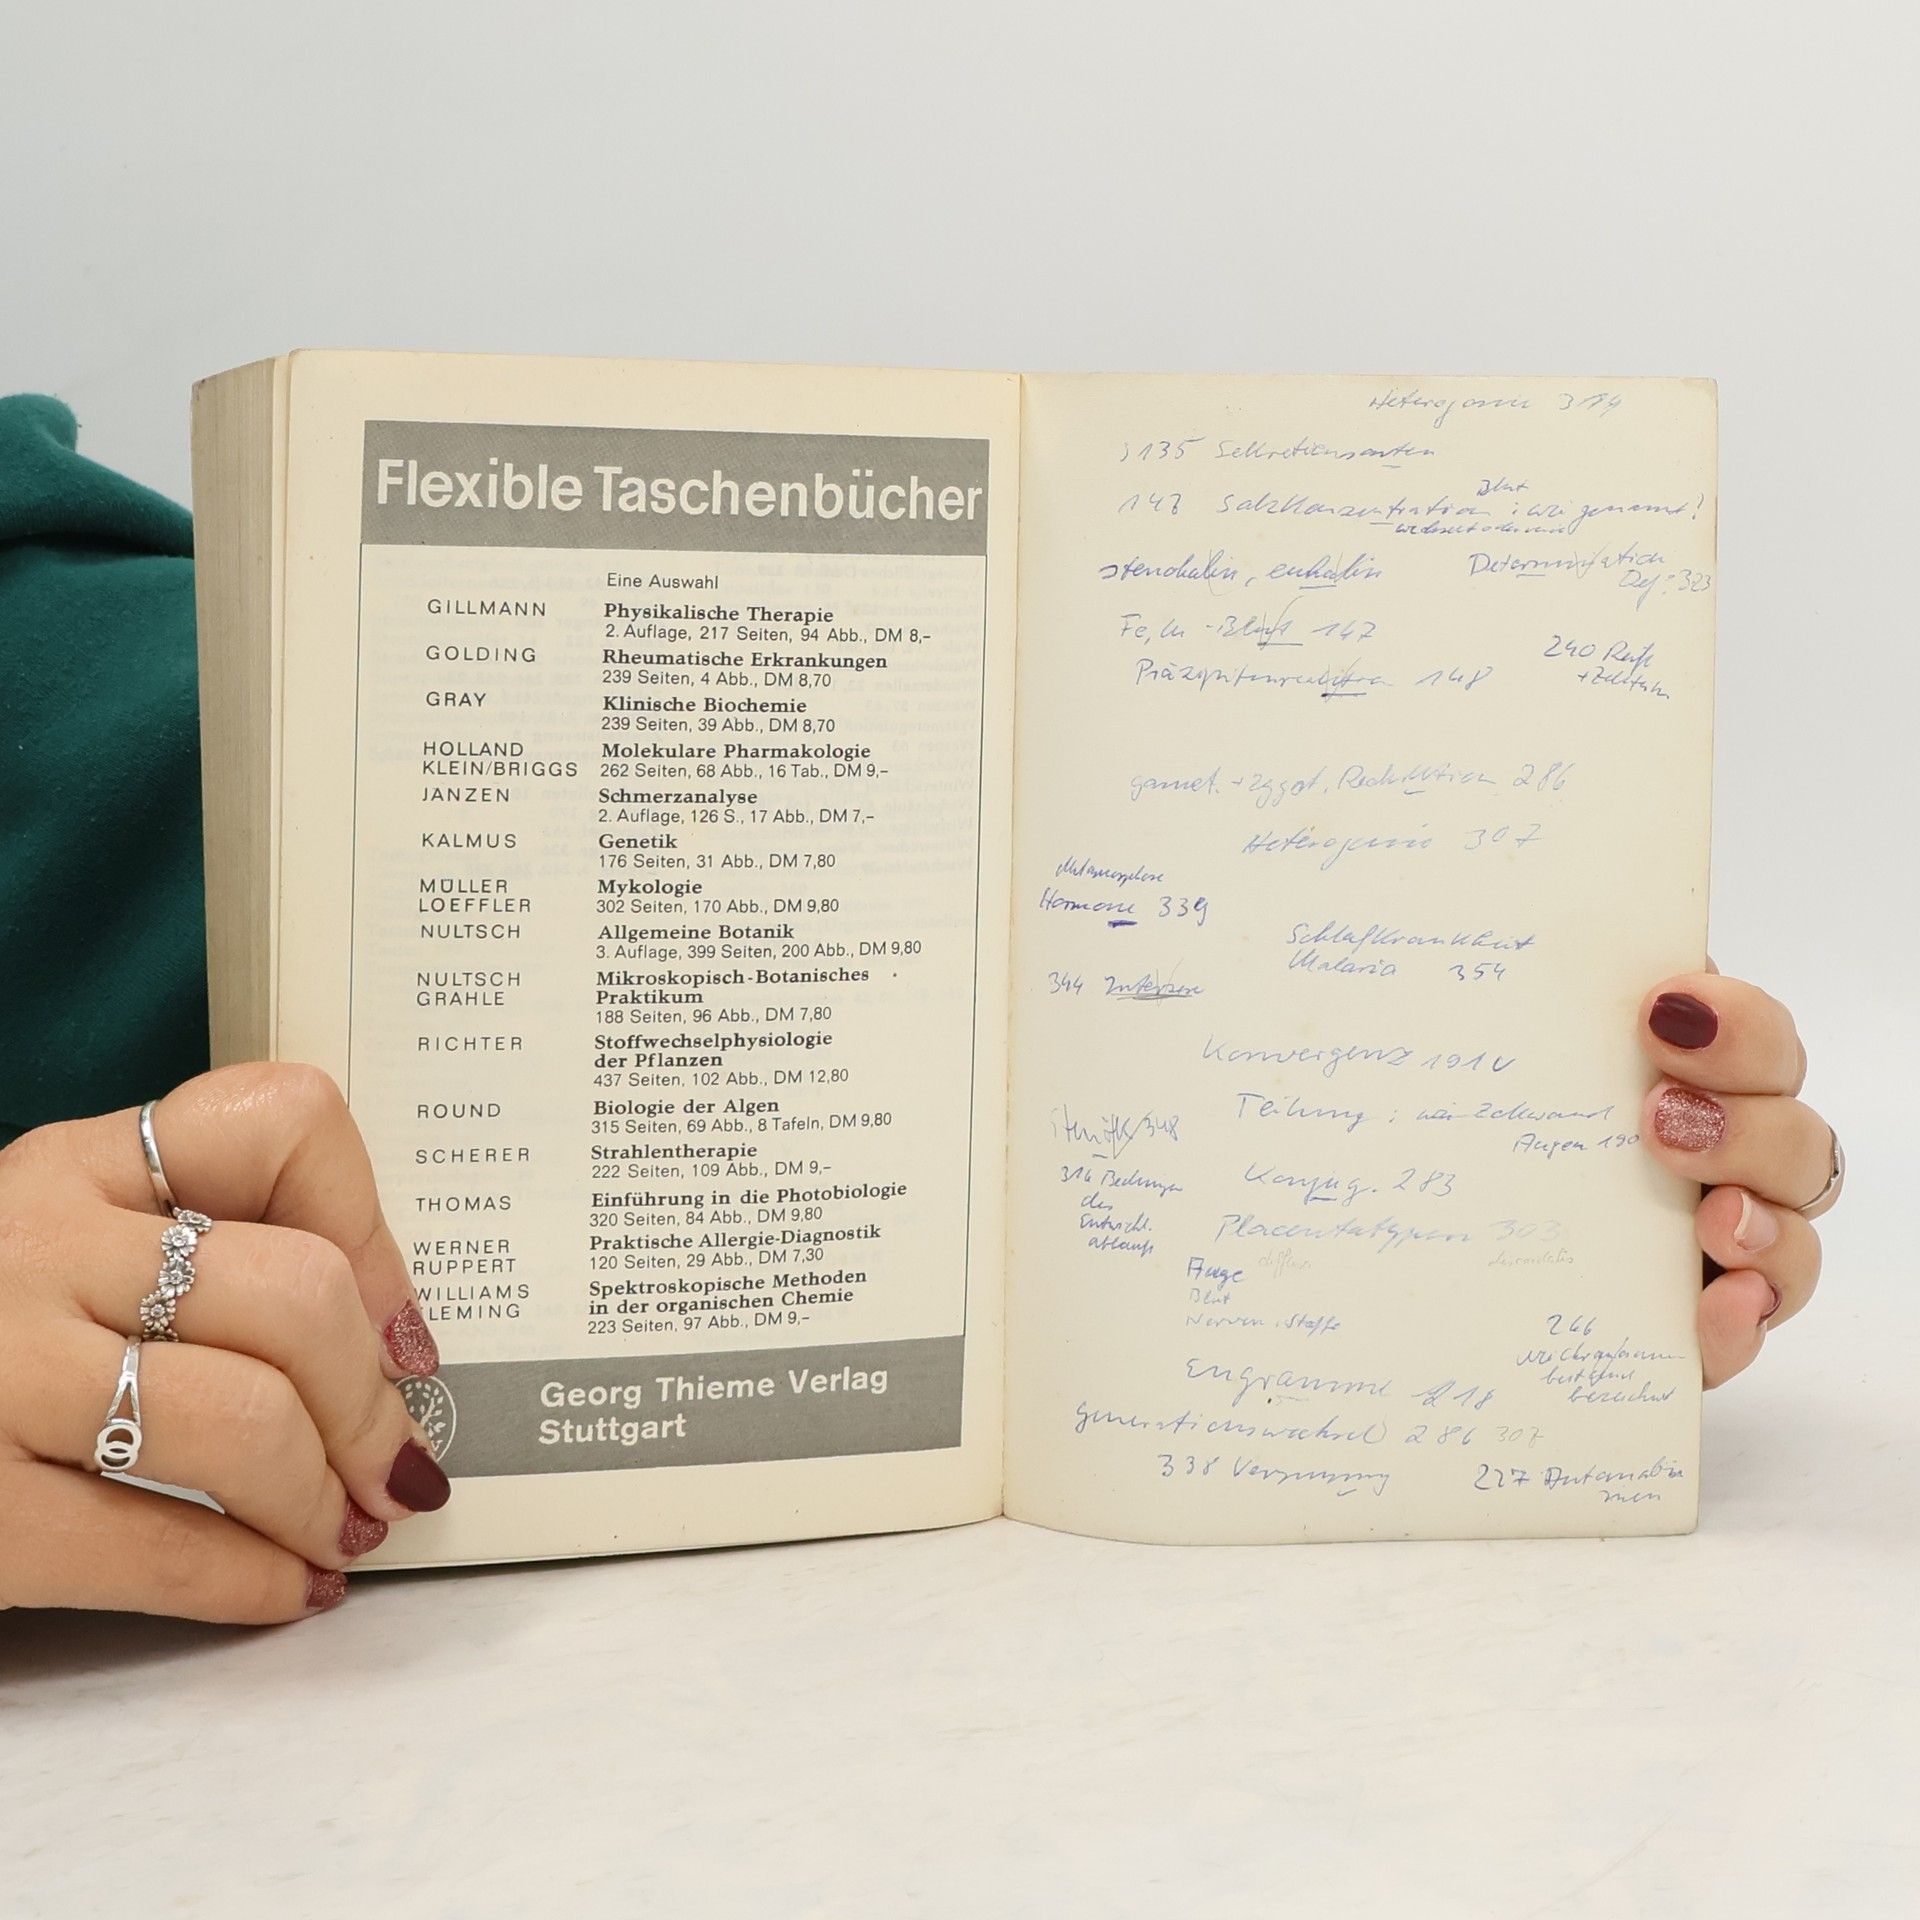 Flexible Taschenbücher
Eine Auswahl
GILLMANN Physikalische Therapie
2. Auflage, 217 Seiten, 94 Abb., DM 8,–
GOLDING Rheumatische Erkrankungen
239 Seiten, 4 Abb., DM 8,70
GRAY Klinische Biochemie
239 Seiten, 39 Abb., DM 8,70
HOLLAND Molekulare Pharmakologie
KLEIN/BRIGGS 262 Seiten, 68 Abb., 16 Tab., DM 9,–
JANZEN Schmerzanalyse
2. Auflage, 126 S., 17 Abb., DM 7,–
KALMUS Genetik
176 Seiten, 31 Abb., DM 7,80
MÜLLER Mykologie
LOEFFLER 302 Seiten, 170 Abb., DM 9,80
NULTSCH Allgemeine Botanik
3. Auflage, 399 Seiten, 200 Abb., DM 9,80
NULTSCH Mikroskopisch-Botanisches
GRAHLE Praktikum
188 Seiten, 96 Abb., DM 7,80
RICHTER Stoffwechselphysiologie
der Pflanzen
437 Seiten, 102 Abb., DM 12,80
ROUND Biologie der Algen
315 Seiten, 69 Abb., 8 Tafeln, DM 9,80
SCHERER Strahlentherapie
222 Seiten, 109 Abb., DM 9,–
THOMAS Einführung in die Photobiologie
320 Seiten, 84 Abb., DM 9,80
WERNER Praktische Allergie-Diagnostik
RUPPERT 120 Seiten, 29 Abb., DM 7,30
WILLIAMS Spektroskopische Methoden
LEMING in der organischen Chemie
223 Seiten, 97 Abb., DM 9,–
Georg Thieme Verlag
Stuttgart
Heterogonie 314
135 Sekretionsarten
Blut
147 Salzkonzentration : wie genannt?
stenohalin, euhalin
Determination
Def: 323
Fe, Cu - Blut 147
Präzipitinreaktion 148
240 Reife
gamet. + zygot. Reduktion 286
Heterogonie 307
Metamorphose
Hormone 339
Schlafkrankheit
Malaria 354
344
Konvergenz 191
348
Teilung :
Augen 190
316 Bedingen
des
Entwickl.
ablaufs
Konjug. 283
Placentatypen 303
diffusa
discoidalis
Auge
Blut
Nerven, Stoffe
266
bezeichnet
Engramme 218
Generationswechsel 286 307
338 Verpuppung
227